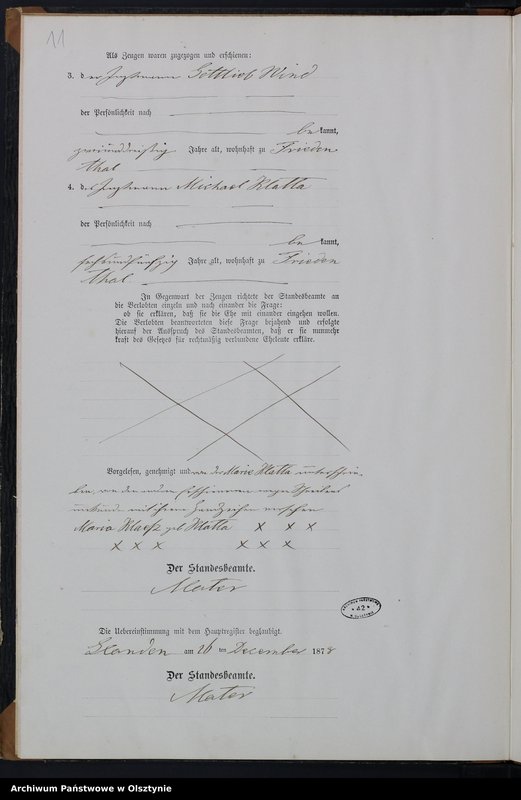 11
Als Zeugen waren zugezogen und erschienen:
3. der Gottlieb Wind
der Persönlichkeit nach
bekannt,
zweiunddreißig Jahre alt, wohnhaft zu Frieden
thal
4. der Michael Klatta
der Persönlichkeit nach
bekannt,
sechsundfünfzig Jahre alt, wohnhaft zu Frieden
thal.
In Gegenwart der Zeugen richtete der Standesbeamte an
die Verlobten einzeln und nach einander die Frage:
ob sie erklären, daß sie die Ehe mit einander eingehen wollen.
Die Verlobten beantworteten diese Frage bejahend und erfolgte
hierauf der Ausspruch des Standesbeamten, daß er sie nunmehr
kraft des Gesetzes für rechtmäßig verbundene Eheleute erkläre.
Vorgelesen, genehmigt und von der Marie Klatta unterschrie-
ben, von den andern wegen
mit ihrem Handzeichen versehen
Maria geb Klatta x x x
x x x x x x
Der Standesbeamte.
Mater
Die Uebereinstimmung mit dem Hauptregister beglaubigt.
am 26 ten December 1878
Der Standesbeamte.
Mater
* 42 *
Archiwum Państwowe w Olsztynie